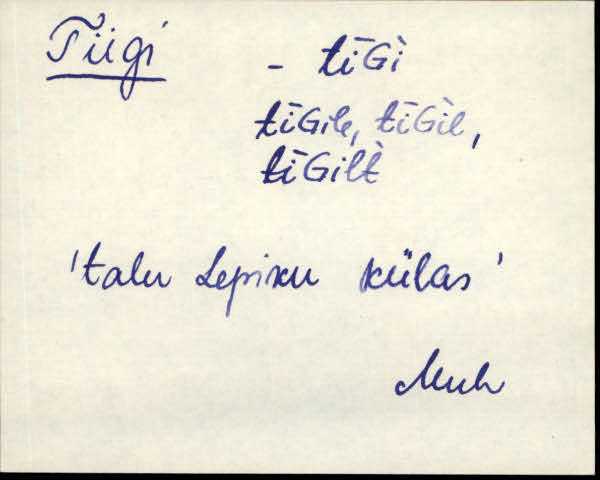 Tiigi - tīGì
tīGile, tīGil,
tīGilt̀
'talu Lepiku külas'
Muh